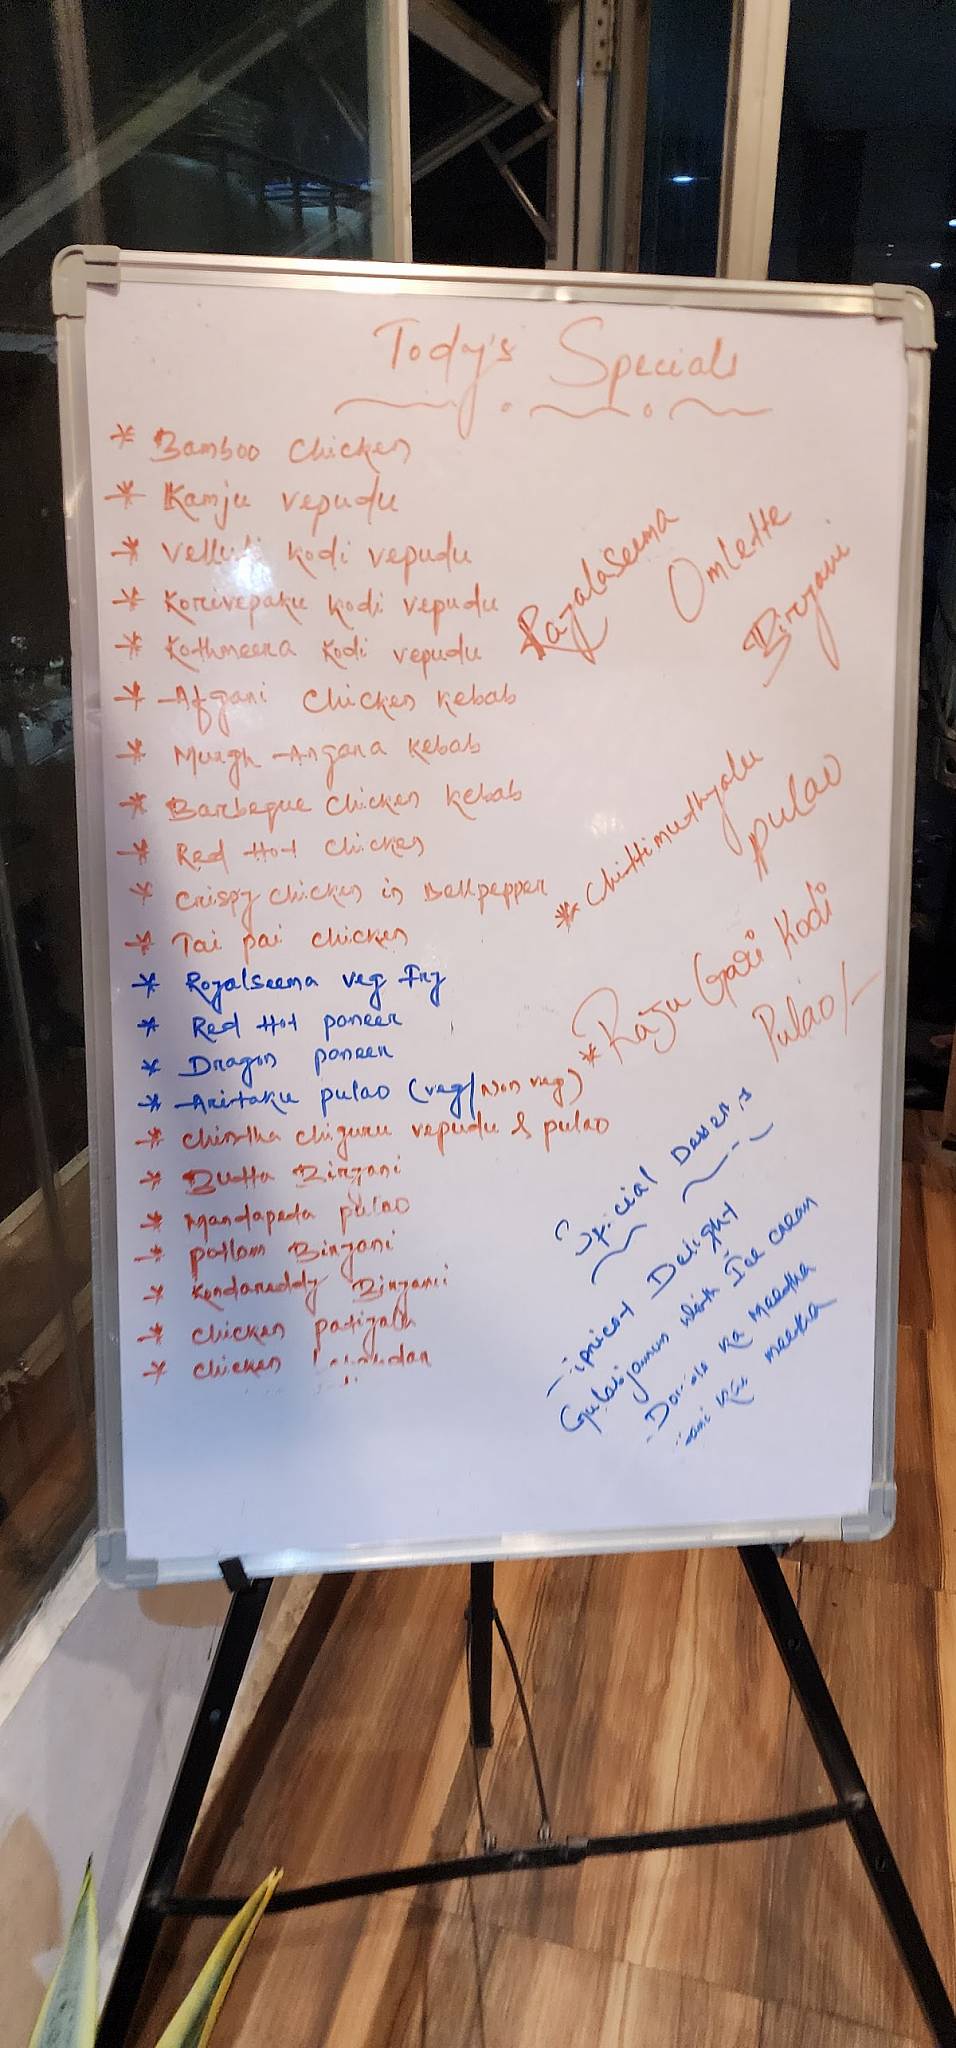 Tody's Specials
* Bamboo Chicken
* Kamju vepudu
* Velluli kodi vepudu
* Korivepaku kodi vepudu
* Kothmeera Kodi vepudu
* Afgani Chicken kebab
* Murgh Angara kebab
* Barbeque Chicken kebab
* Red Hot Chicken
* Crispy chicken in Bellpepper
* Tai pai chicken
* Royalseema veg Fry
* Red Hot paneer
* Dragon paneer
* Aritaku pulao (veg/Non veg)
* chintha chiguru vepudu & pulao
* Butta Biryani
* Mandapeta pulao
* potlam Biryani
* Kondareddy Biryani
* chicken patiyala
* chicken
Rayalaseema
Omlette
Biryani
* Chittimuthyalu
pulao
* Raju Gari Kodi
Pulao/-
Special Desserts
Apricot Delight
Gulabjamun with Ice cream
ka meetha
meetha